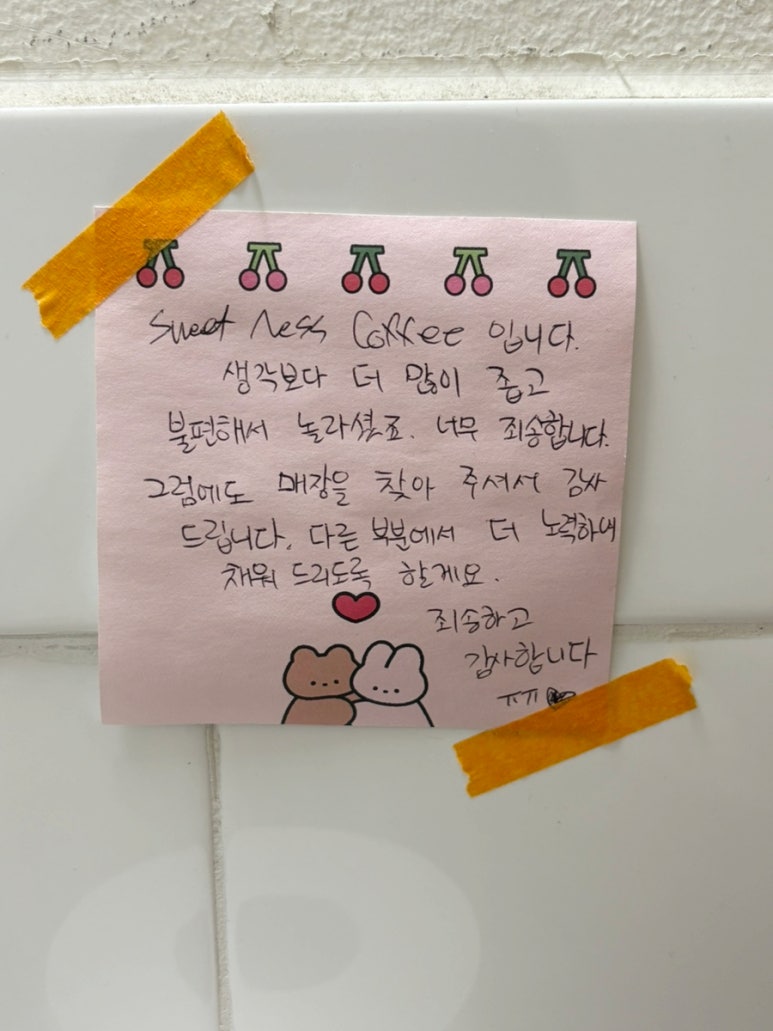 Sweet Ness Coffee 입니다.
생각보다 더 많이 좁고
불편해서 놀라셨죠. 너무 죄송합니다.
그럼에도 매장을 찾아 주셔서 감사
드립니다. 다른 부분에서 더 노력하며
채워 드리도록 할게요.
죄송하고
감사합니다
ㅠㅠ